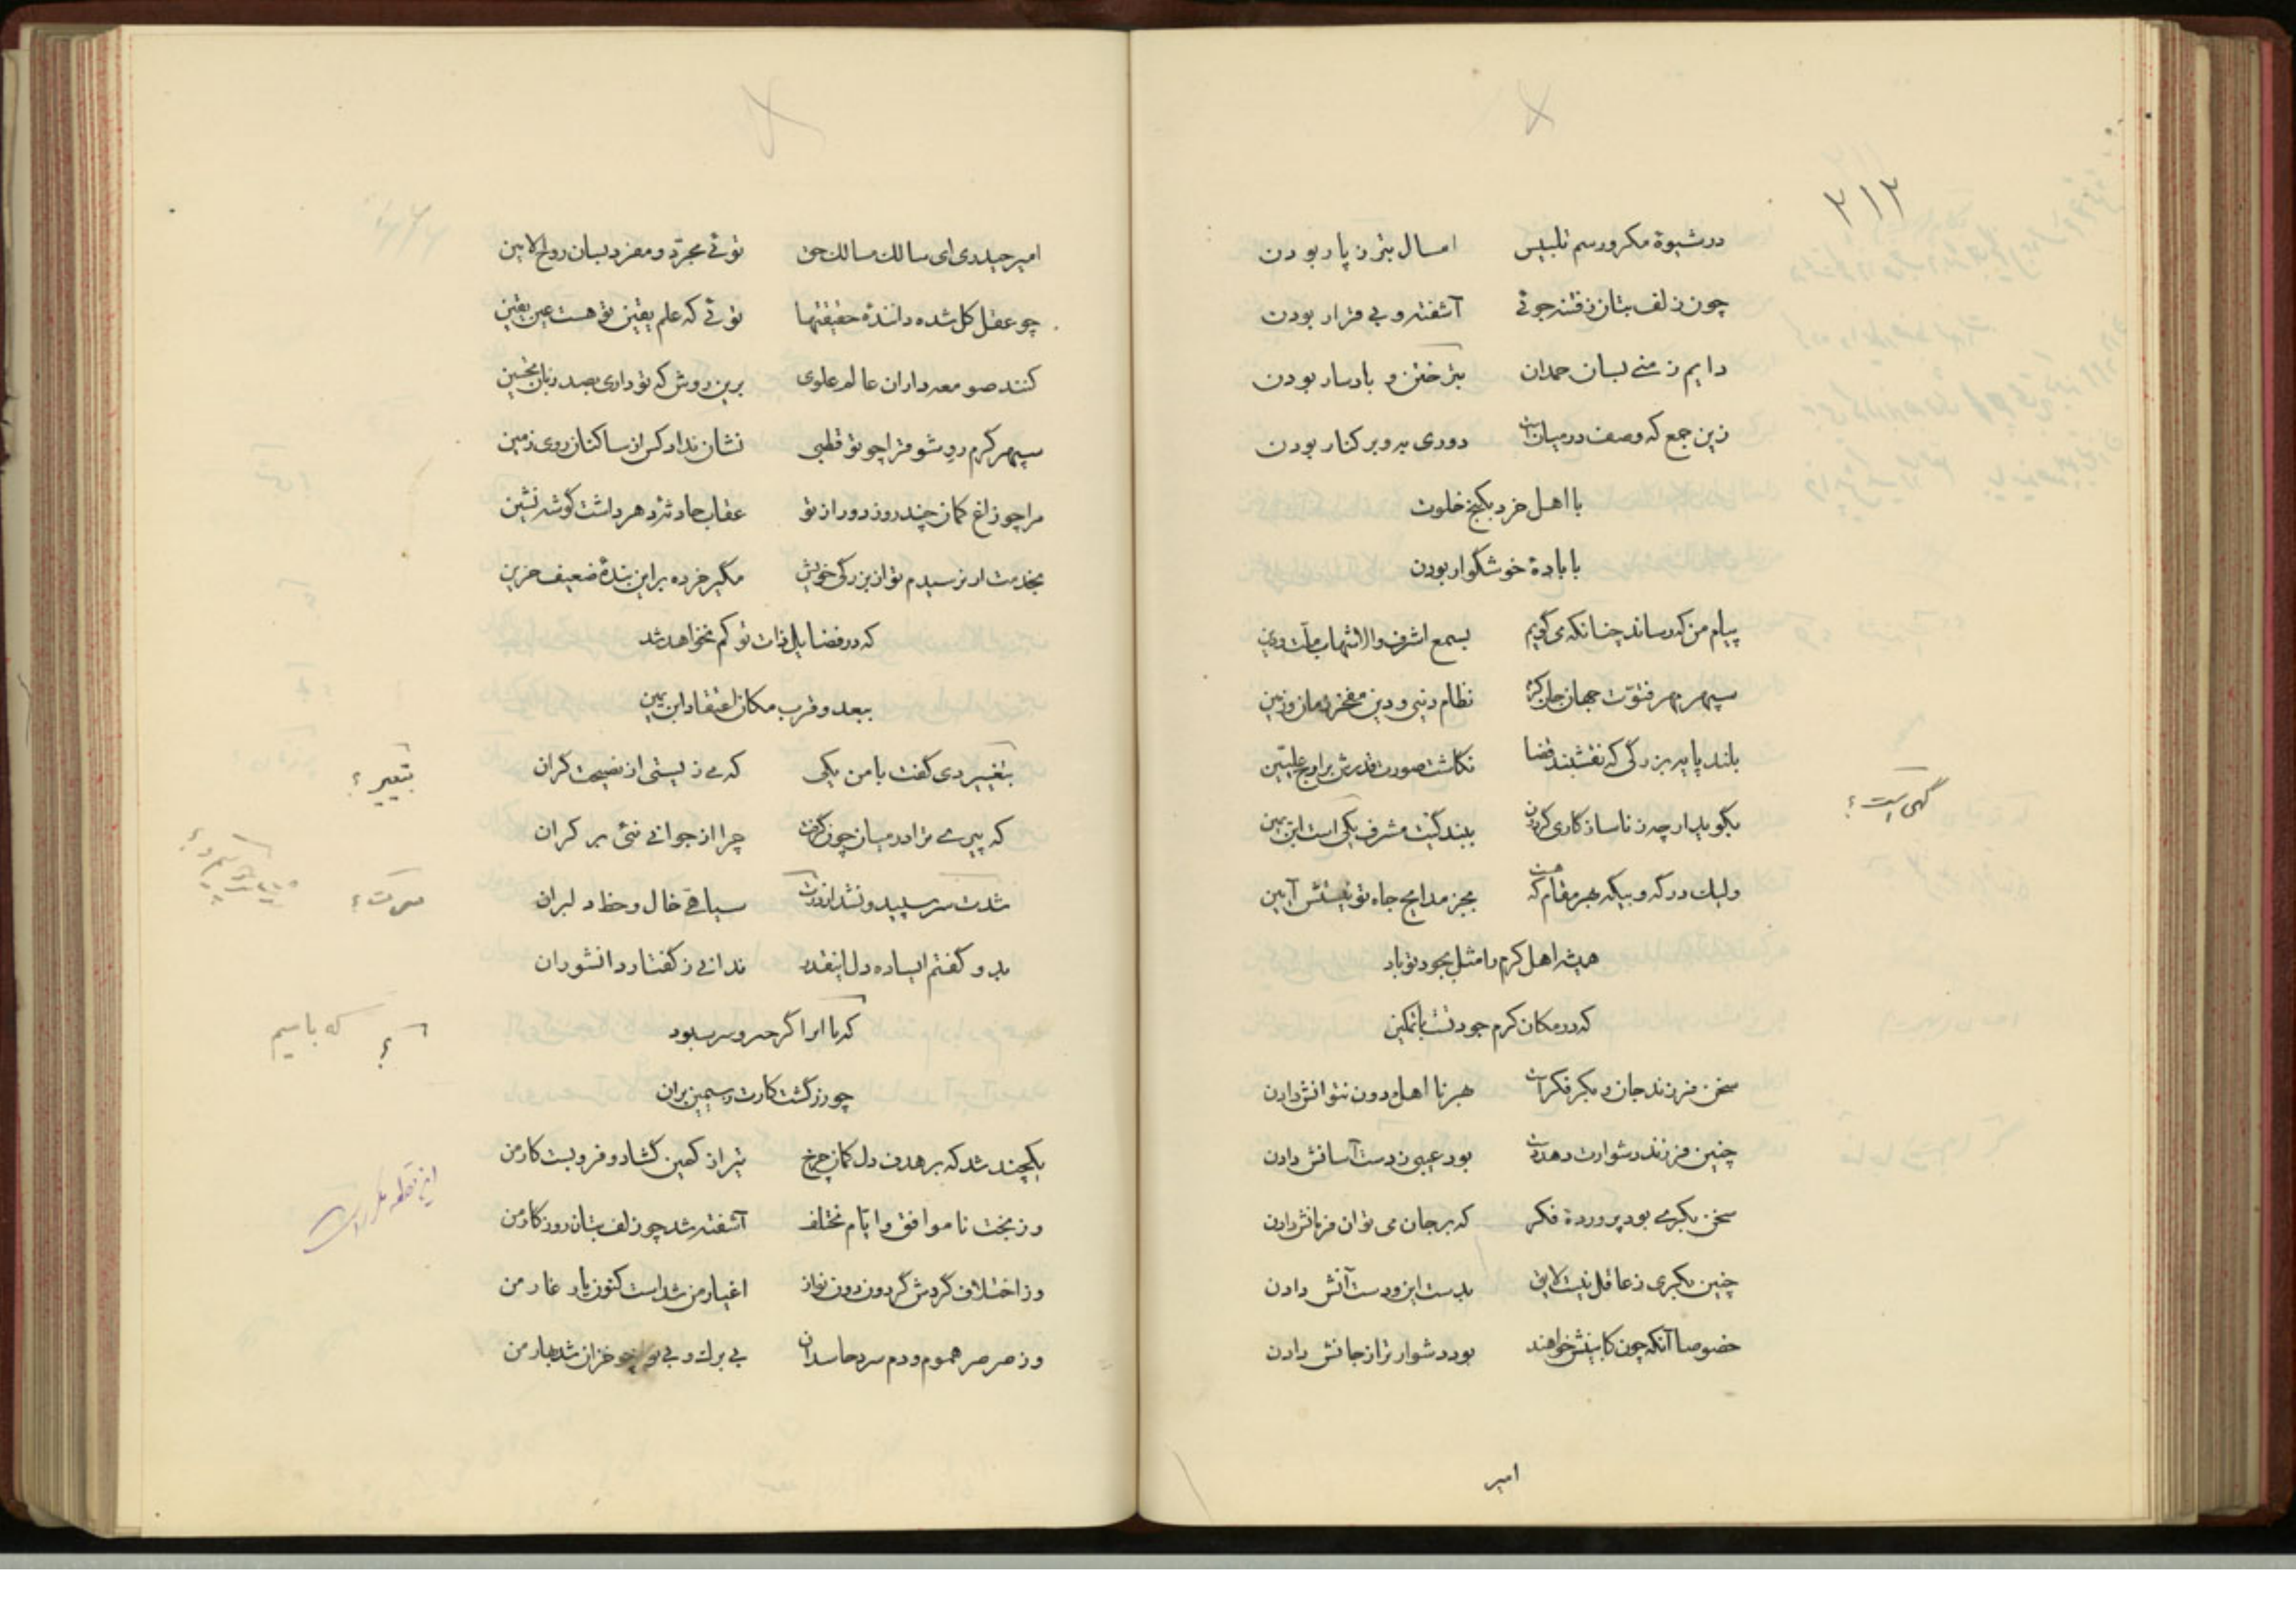 ۲۱۲
در شیوهٔ مکر و رسم تلبیس امسال بتر ز پار بودن
چون زلف بتان ز فتنه جوئی آشفته و بی قرار بودن
دایم ز منی بسان حمدان بتر ختن و بادسار بودن
زین جمع که وصف در میانست دوری به و بر کنار بودن
با اهل خرد بکنج خلوت
با بادهٔ خوشگوار بودن
پیام من که رساند چنانکه می گویم بسمع اشرف والا شهاب ملت و دین
سپهر مهر فتوت جهان جان کرم نظام دنیی و دین مفخر زمان و زمین
بلند پایه بزرگی که نقشبند قضا نگاشت صورت قدرش بر اوج علیین
بگو بدار چه ز ناسازکاری گردون ببند گیت مشرف یکی است ابن یمین
گهی است ؟
ولیک در که و بیگه بهر مقام که هست بجز مدایح جاه تو نیستش آیین
همیشه اهل کرم را مثل بجود تو باد
که در مکان کرم جود تست با تمکین
سخن فرزند جان و بکر فکر است بهر نا اهل دون نتوانش دادن
چنین فرزند دشوارت دهد دست بود عیبی ز دست آسانش دادن
سخن بکری بود پروردهٔ فکر که بر جان می توان فرمانش دادن
چنین بکری ز عاقل نیست لایق بدست این و دست آنش دادن
خصوصا آنکه چون کابینش خواهند بود دشوارتر از جانش دادن
امیر
امیر حیدری ای سالک مسالک حق توئی مجرد و مفرد بسان روح الامین
چو عقل کل شده دانندهٔ حقیقتها توئی که علم یقین تو هست عین یقین
کنند صومعه داران عالم علوی برین روش که تو داری بصد زبان تحسین
سپهر کرم رو شو فترا چو تو قطبی نشان نداد کس از ساکنان روی زمین
مرا چو زاغ کمان چند روز دور از تو عقاب حادثهٔ دهر داشت گوشه نشین
بخدمت ار نرسیدم تو از بزرگی خویش مگیر خرده بر این بندهٔ ضعیف حزین
که در فضایل ذات تو کم نخواهد شد
ببعد و قرب مکان اعتقاد ابن یمین
بتغییر دی گفت با من یکی که می زیستی از نصیحت گران
بتعییر ؟
که پیری ترا در میان چون گرفت چرا از جوانی نئی بر کران
شدت سر سپید و نشد از درت سیاقی خال و خط دلبران
سرت ؟
بدو گفتم ای ساده دل اینقدر ندانی ز گفتار دانشوران
که ما را اگر حر و سر سبود
؟ که با سیم
چو زر گشت کارت ز سیمین بران
یکچند شد که بر هدف دل کمان چرخ تیر از کمین گشاد و فرو بست کار من
این قطعه مکرر است
وز بخت ناموافق و ایام مختلف آشفته شد چو زلف بتان روزگار من
وز اختلاف گردش گردون دون نواز اغیار من شد است کنون یار غار من
وز صرصر هموم و دم سرد حاسدان بی برگ و بی نوا چو خزان شد بهار من